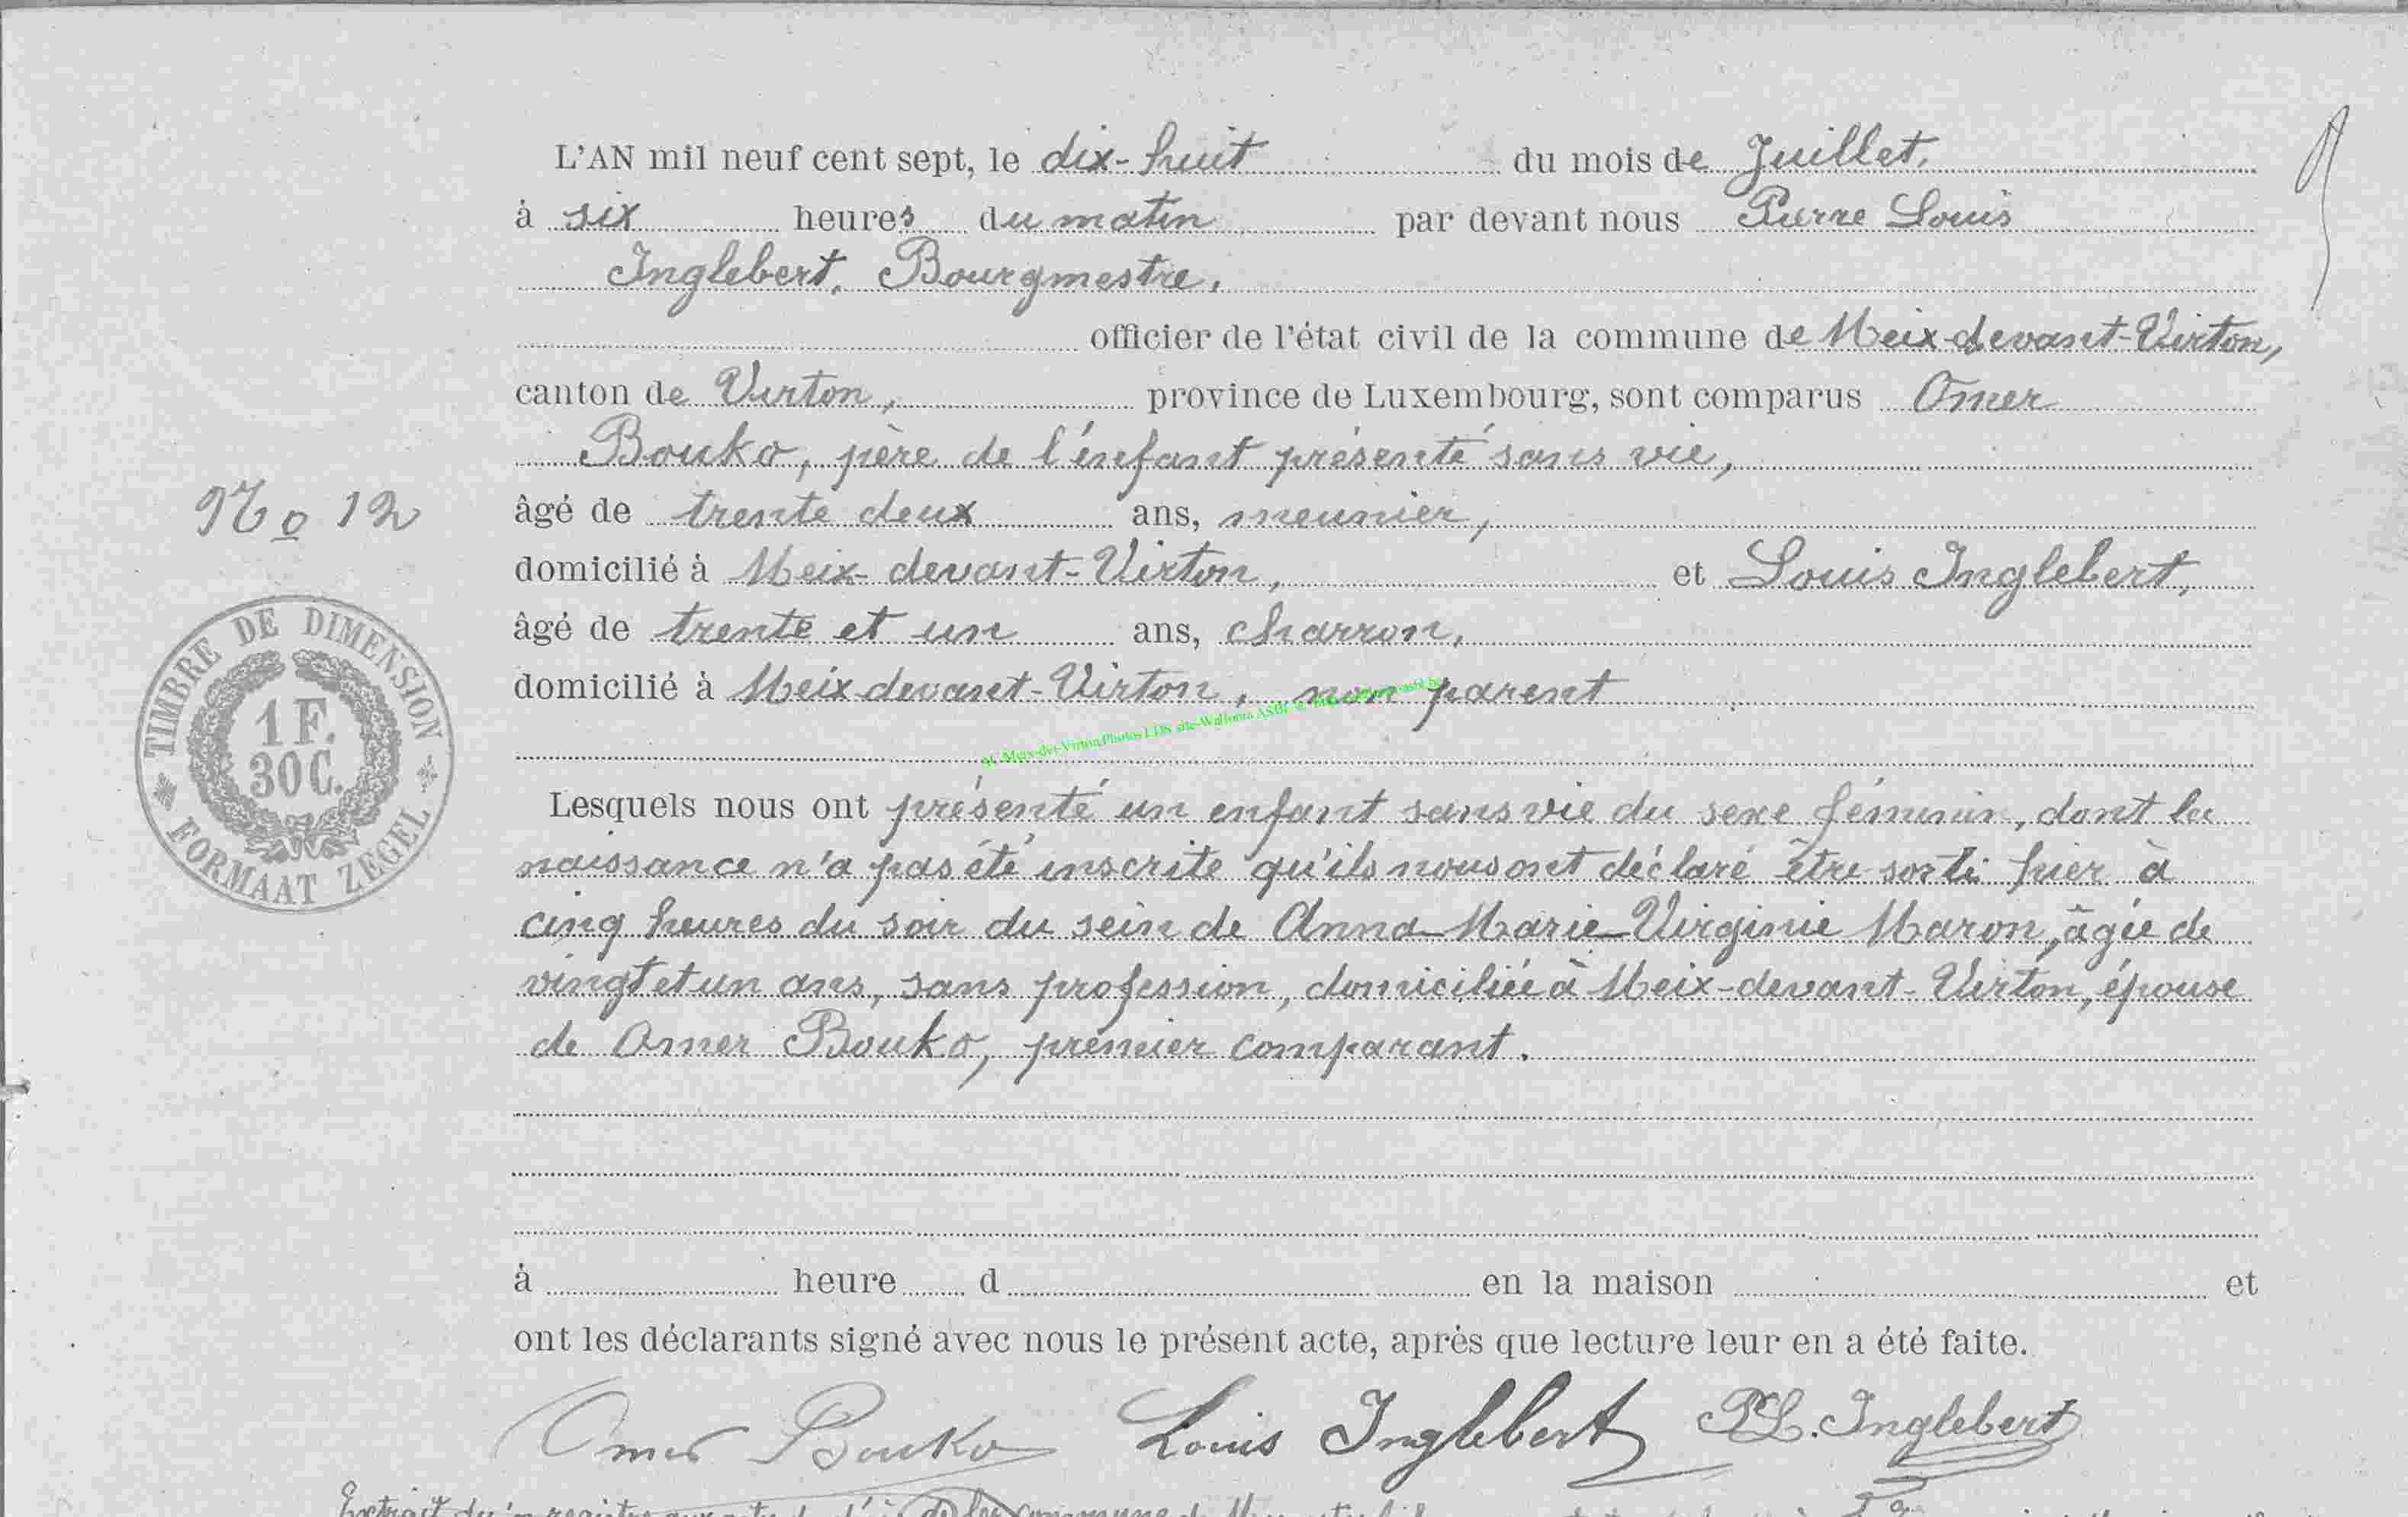 L'AN mil neuf cent sept, le dix-huit du mois de Juillet,
à six heures du matin par devant nous Pierre Louis
Inglebert, Bourgmestre,
officier de l'état civil de la commune de Meix-devant-Virton,
canton de Virton, province de Luxembourg, sont comparus Omer
Bouko, père de l'enfant présenté sans vie,
No 12
âgé de trente deux ans, meunier,
domicilié à Meix-devant-Virton, et Louis Inglebert,
âgé de trente et un ans, charron,
domicilié à Meix-devant-Virton, non parent
TIMBRE DE DIMENSION
1 F.
30 C.
FORMAAT ZEGEL
Lesquels nous ont présenté un enfant sans vie du sexe féminin, dont la
naissance n'a pas été inscrite qu'ils nous ont déclaré être sorti hier à
cinq heures du soir du sein de Anna Marie Virginie Maron, âgée de
vingt et un ans, sans profession, domiciliée à Meix-devant-Virton, épouse
de Omer Bouko, premier comparant.
à heure d en la maison et
ont les déclarants signé avec nous le présent acte, après que lecture leur en a été faite.
Omer Bouko Louis Inglebert PL. Inglebert